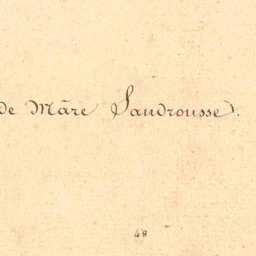 de Mãre Sandrousse).
48